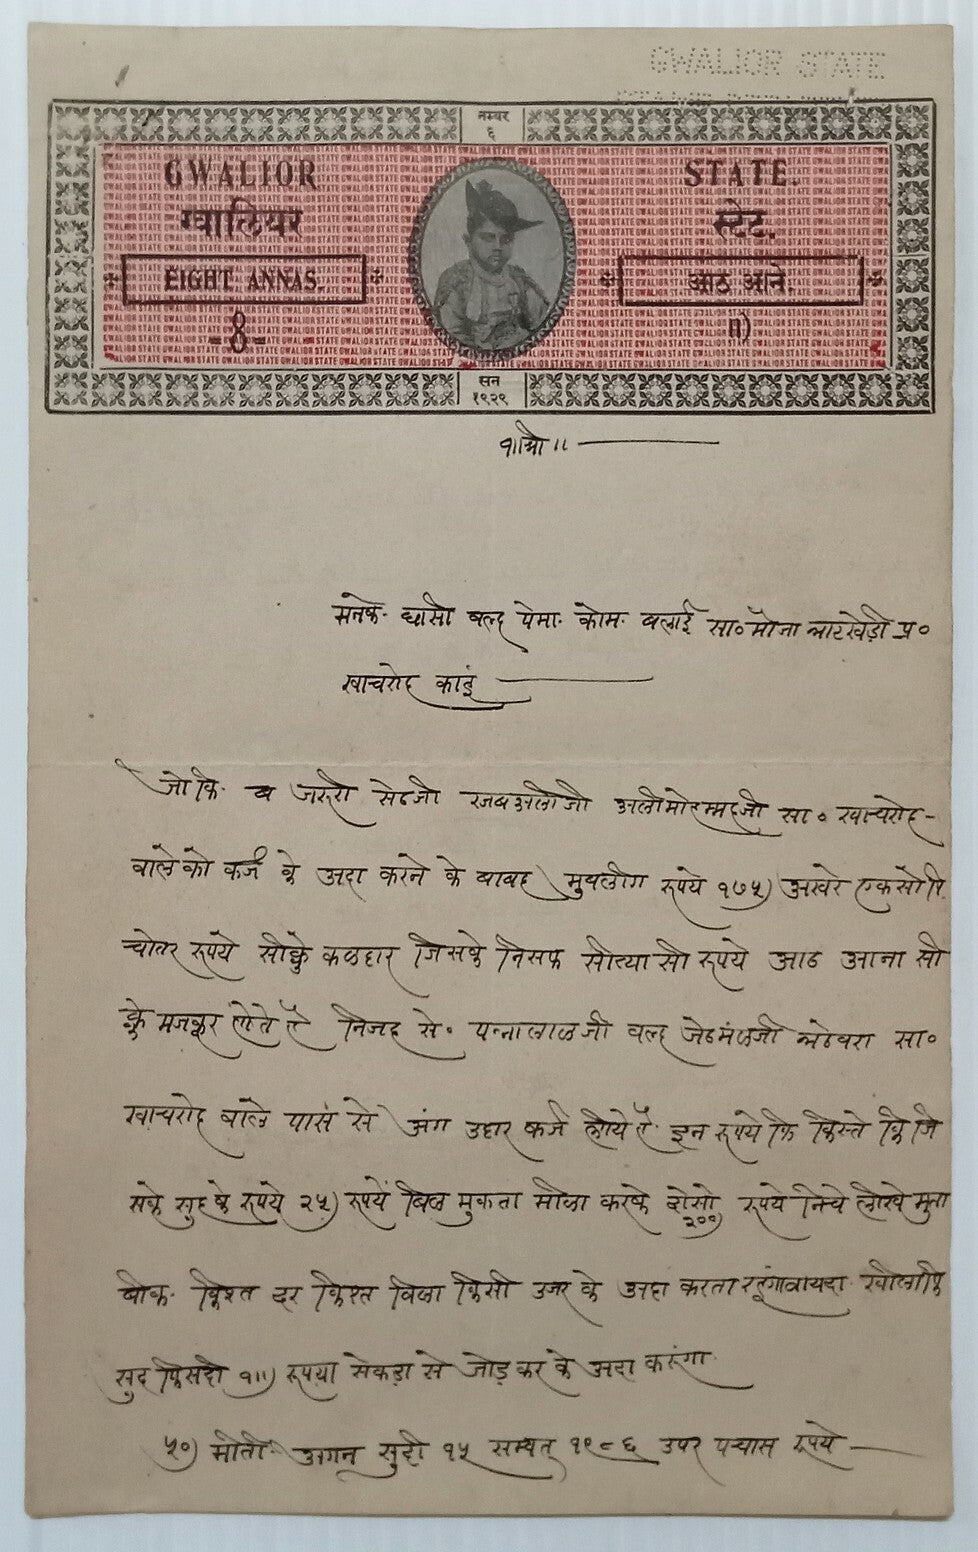 GWALIOR STATE
नम्बर
६
GWALIOR STATE.
ग्वालियर स्टेट.
EIGHT ANNAS. आठ आने.
-8- ॥)
सन
१९२९
१।श्री॥
मनके घासी वल्द पेमा कोम बलाई सा० मौजा भाटखेडी प्र०
खाचरोद काइुं
जो कि ब जरुरी सेठजी रजबअलीजी अलीमोहम्मदजी सा० खाचरोद-
वाले को कर्ज के अदा करने के बाबद मुबलीग रूपये १७५) अखेरे एकसो पि
च्योतर रूपये सीक्के कळदार जिसके निसफ सीत्यासी रूपये आठ आना सी
क्के मजकूर होते हैं निजद से० पन्नालाळजी वल्द जेठमंळजी सा०
खाचरोद वाले पास से अंग उद्दार कर्ज लीये हैं इन रूपये कि किस्ते कि जि
सके सुद के रूपये २५) रूपयें मुकता मीळा करके दोसो २००) रूपये निचे लीखे मुता
बीक किश्त दर किश्त बिला किसी उजर के अदा करता रहूंगा वायदा खीलाफि
सुद फिसदी १॥) रूपया सेकडा से जोड कर के अदा करूंगा
५०) मीती अगन सुदी १५ सम्वत् १९८६ उपर पचास रूपये